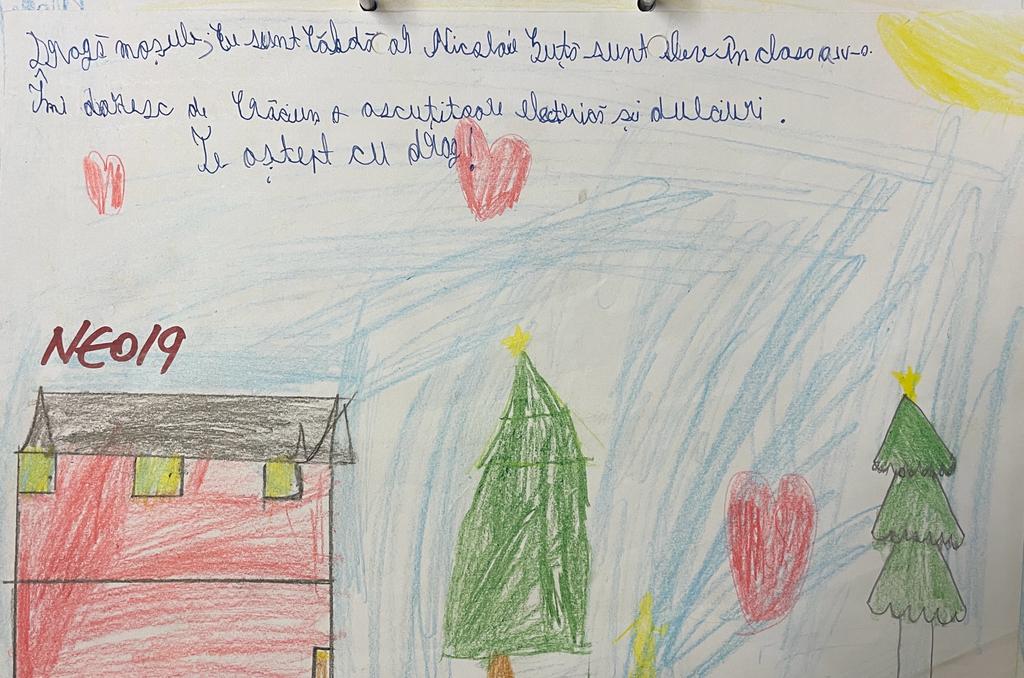 Dragă moșule, Eu sunt al Nicolae Guță sunt elev în clasa a IV-a.
Îmi doresc de Crăciun o ascuțitoare electrică și dulciuri.
Te aștept cu drag!
NEO19